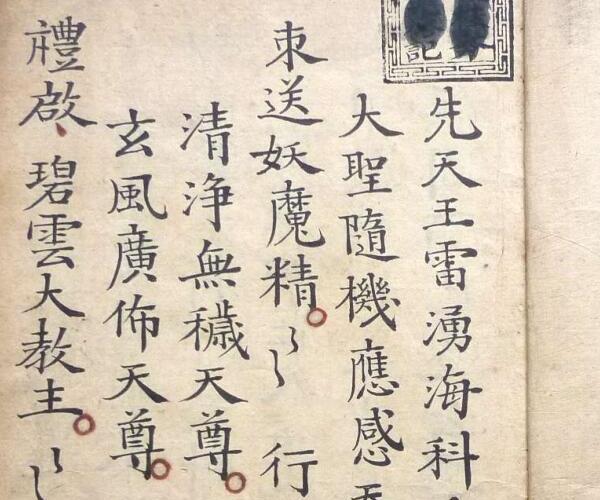 先天王雷湧海科
大聖隨機應感天
束送妖魔精 行
清浄無穢天尊
玄風廣佈天尊
禮啟碧雲大教主
記